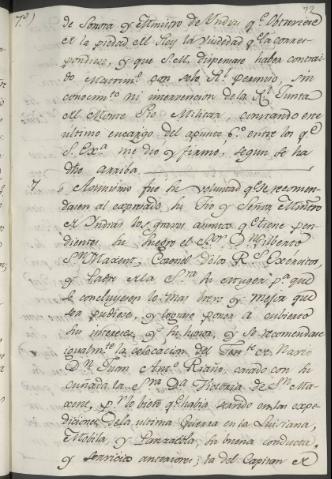 72
7.º)
de Sonora y Ministro de Yndias q.e obtuviere
de la piedad del Rey la viudedad q.e la corres-
pondiese, y que S.M. dispensase haber contrai-
do Matrim.º con solo su permiso, sin
conocim.to ni intervencion de la R.l Junta
del Monte Pio Militar, contando este
ultimo encargo del apunte 6.º entre los q.e
S. Ex.a me dio y firmó, segun se ha
dho arriba.
7. Asimismo fué su voluntad q.e se recomen-
dasen al expresado su Tio y Señor Ministro
de Yndias los graves asuntos q.e tiene pen-
dientes su Suegro el S.or D.n Gilberto
S.n Maxent, Coronel de los R.s Exercitos,
y Padre de la S.ra su esposa p.a que
se concluyesen lo mas breve y mejor que
sea pudiese, y lograse poner a cubierto
sus intereses y su honor, y se recomendase
igualm.te la colocacion del Then.te de Navio
D.n Juan Ant.º Riaño, casado con su
cuñada la S.ra D.a Victoria de S.n Ma-
xent, p.r lo bien q.e habia servido en las expe-
diciones de la ultima Guerra en la Luisiana,
Mobila, y Panzacola, su buena conducta
y servicios anteriores; la del Capitan de